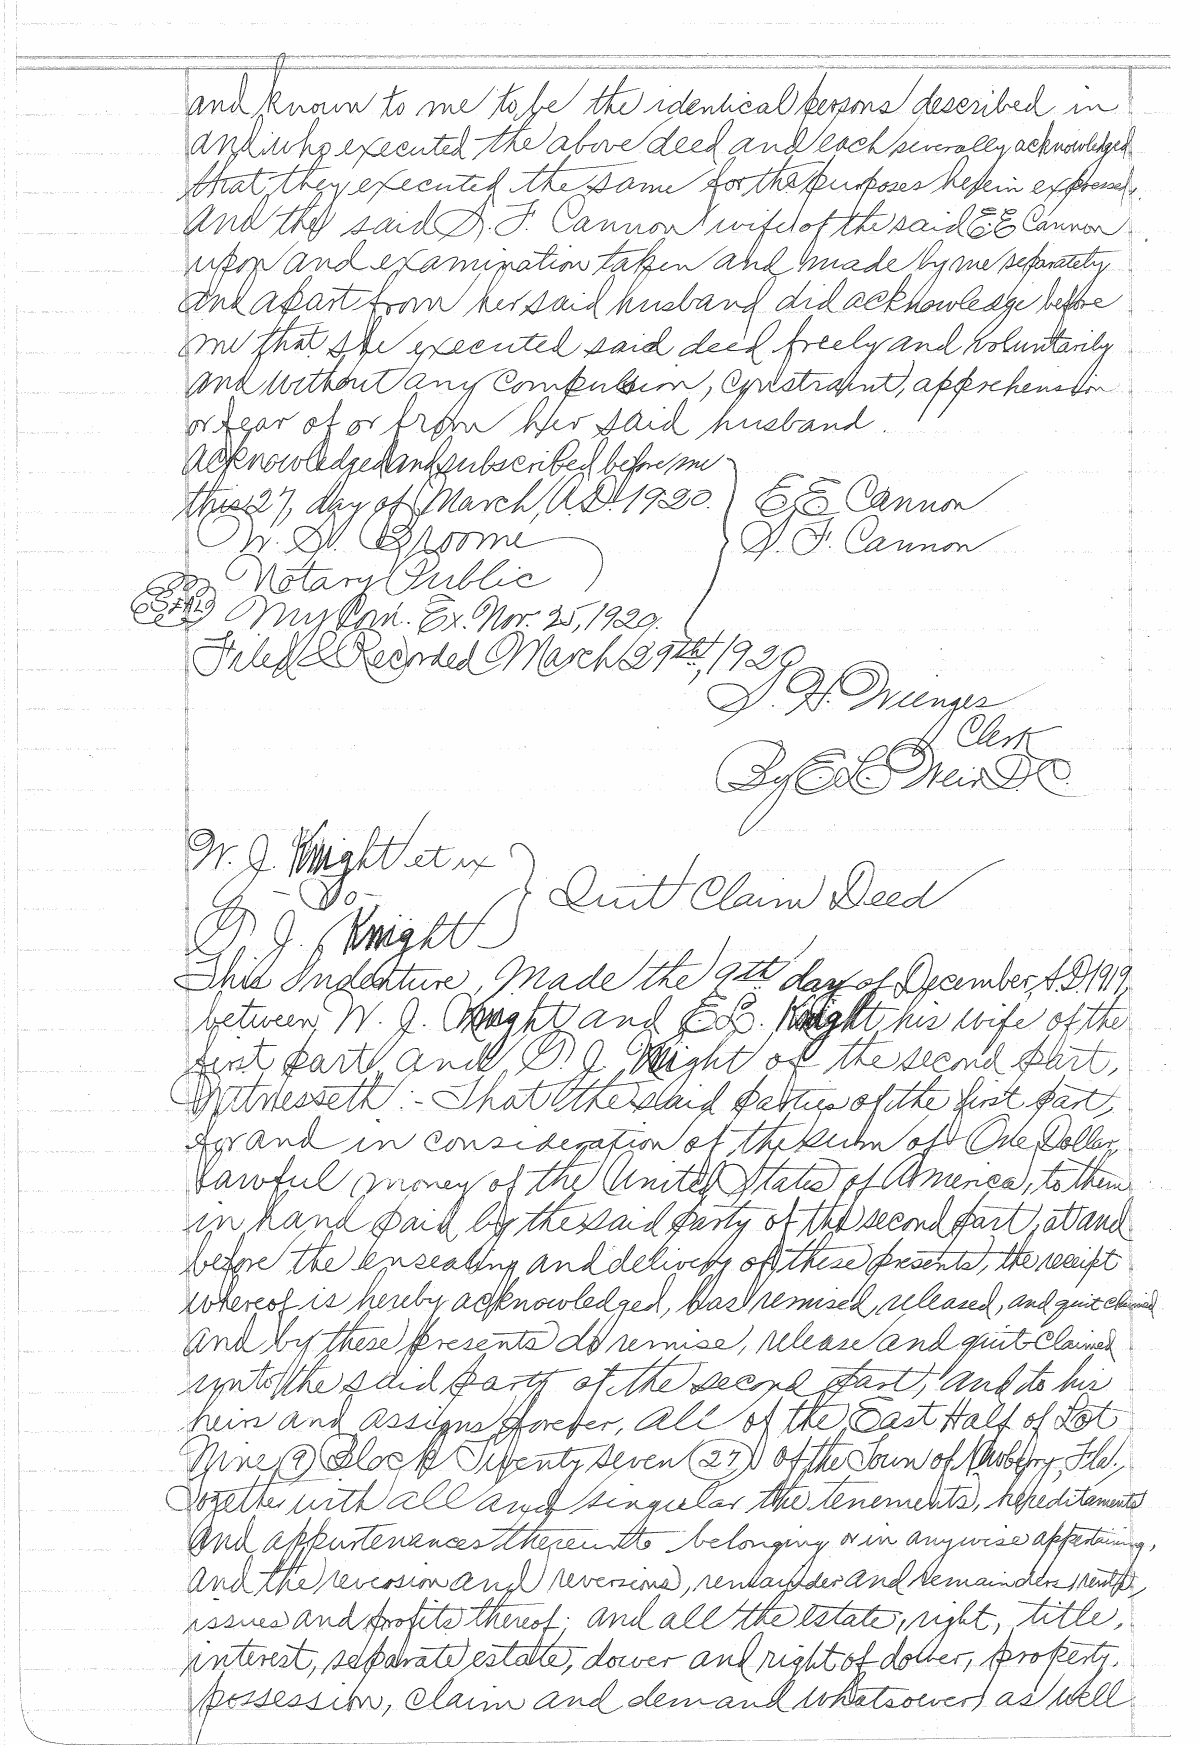 and known to me to be the identical persons described in
and who executed the above deed and each severally acknowledged
that they executed the same for the purposes herein expressed,
And the said S. F. Cannon wife of the said E.E Cannon
upon and examination taken and made by me separately
and apart from her said husband did acknowledge before
me that she executed said deed freely and voluntarily
and without any compulsion, constraint, apprehension
or fear of or from her said husband.
Acknowledged and subscribed before me
this 27, day of March, A.D. 1920. E E Cannon
W. S. Broome S. F. Cannon
Notary Public
SEAL My Com. Ex. Nov. 25, 1920.
Filed & Recorded March 29th, 1920
S. H. Wienges
Clerk
By E L Weir D.C.
W. J. Knight et ux
-To- Quit Claim Deed
P. J. Knight
This Indenture, Made the 9th day of December, A.D. 1919,
between W. J. Knight and E L. Knight, his wife of the
first part, and P. J. Knight of the second part,
Witnesseth:- That the said parties of the first part,
for and in consideration of the sum of One Dollar,
lawful money of the United States of America, to them
in hand paid by the said party of the second part, at and
before the ensealing and delivery of these presents, the receipt
whereof is hereby acknowledged, has remised, released, and quit claimed
and by these presents do remise, release and quit-claimed
unto the said party of the second part, and to his
heirs and assigns forever, all of the East Half of Lot
Nine (9) Block Twenty seven (27) of the Town of Newberry, Fla.,
Together with all and singular the tenements, hereditaments
and appurtenances thereunto belonging or in anywise appertaining,
and the reversion and reversions, remainder and remainders, rents,
issues and profits thereof; and all the estate, right, title,
interest, separate estate, dower and right of dower, property,
possession, claim and demand whatsoever, as well